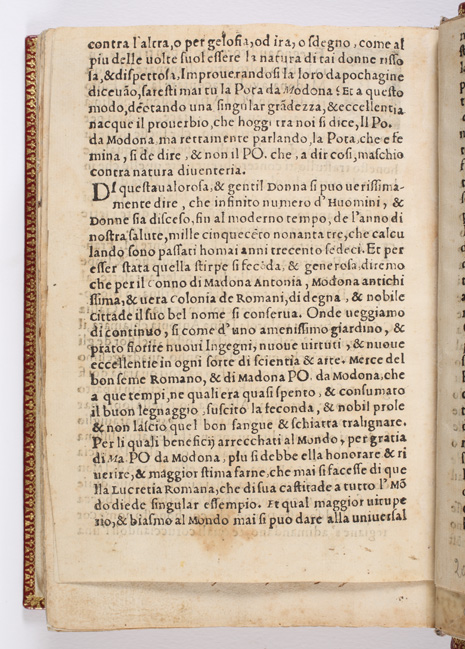 contra l'altra, o per gelosia, od ira, o sdegno, come al
piu delle uolte suol essere la natura di tai donne risso
sa, & dispettosa, Improuerandosi la loro dapochagine
diceuão, saresti mai tu la Pota da Modona? Et a questo
modo, denotando una singular grãdezza, & eccellentia
nacque il prouerbio, che hoggi tra noi si dice, Il Po.
da Modona, ma rettamente parlando, la Pota, che e fe
mina, si de dire, & non il PO. che, a dir cosi, maschio
contra natura diuenteria.
DI questa ualorosa, & gentil Donna si puo uerissima-
mente dire, che infinito numero d'Huomini, &
Donne sia disceso, fin al moderno tempo, de l'anno di
nostra salute, mille cinquecẽto nonanta tre, che calcu
lando sono passati homai anni trecento sedeci. Et per
esser stata quella stirpe si fecõda, & generosa, diremo
che per il conno di Madona Antonia, Modona antichi
ssima, & uera Colonia de Romani, di degna, & nobile
cittade il suo bel nome si conserua. Onde ueggiamo
di continuo, si come d'uno amenissimo giardino, &
prato fiorite nuoui Ingegni, nuoue uirtuti, & nuoue
eccellentie in ogni sorte di scientia & arte. Merce del
bon seme Romano, & di Madona PO. da Modona, che
a que tempi, ne quali era quasi spento, & consumato
il buon legnaggio, suscitò la feconda, & nobil prole
& non lascio quel bon sangue & schiatta tralignare.
Per li quali beneficij arrecchati al Mondo, per gratia
di Ma PO da Modona, piu si debbe ella honorare & ri
uerire, & maggior stima farne, che mai si facesse di que
lla Lucretia Romana, che di sua castitade a tutto l'Mõ
do diede singular essempio. Et qual maggior uitupe
rio, & biasmo al Mondo mai si puo dare alla uniuersal